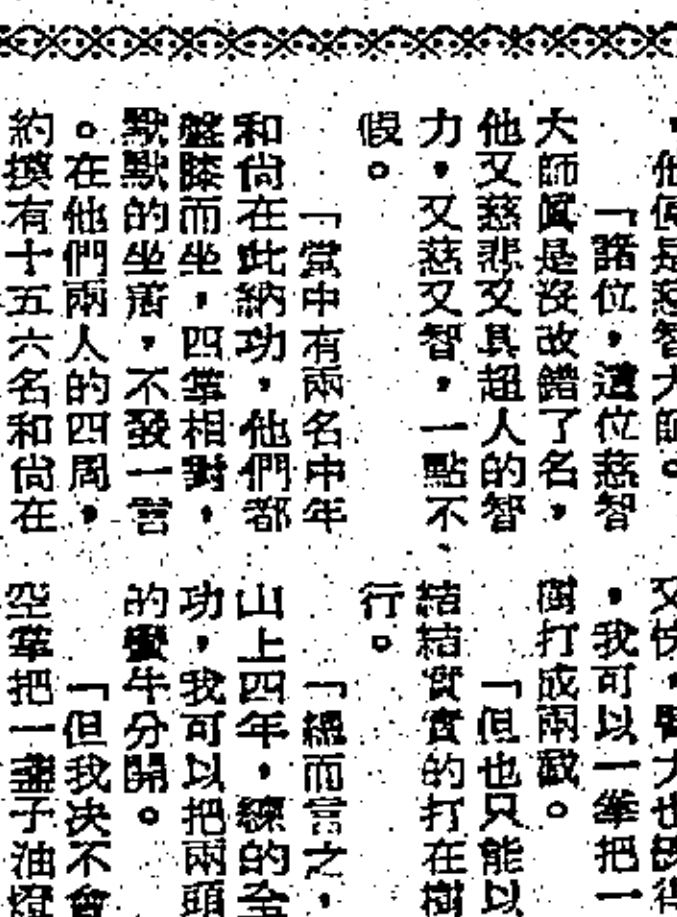 ，他便是慈智大師。
「諸位，這位慈智
大師眞是沒改錯了名，
他又慈悲又具超人的智
力，又慈又智，一點不
假。
「當中有兩名中年
和尙在此納功，他們都
盤膝而坐，四掌相對，
默默的坐着，不發一言
。在他們兩人的四周，
約摸有十五六名和尙在
又快，
，我可以一拳把一
樹打成兩截。
「但也只能以
結結實實的打在樹
行。
「總而言之，
山上四年，練的全
功，我可以把兩頭
的蠻牛分開。
「但我决不會
空掌把一盞子油燈